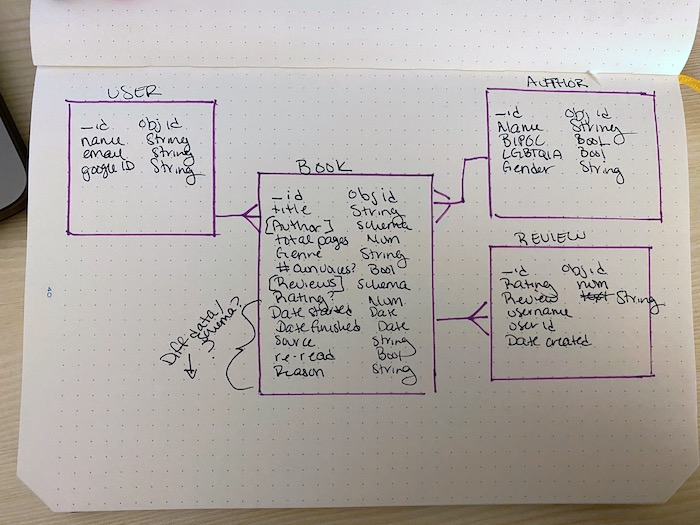 USER
_id Obj id
name String
email String
google ID String
BOOK
_id Obj id
title String
[Author] Schema
total pages Num
Genre String
# ownvoices? Bool
[Reviews] Schema
Rating? Num
Date started Date
Date finished Date
Source String
re-read Bool
Reason String
Diff data/
schema?
AUTHOR
_id Obj id
Name String
BIPOC Bool
LGBTQIA Bool
Gender String
REVIEW
_id Obj id
Rating num
Review text String
username
user id
Date created
40